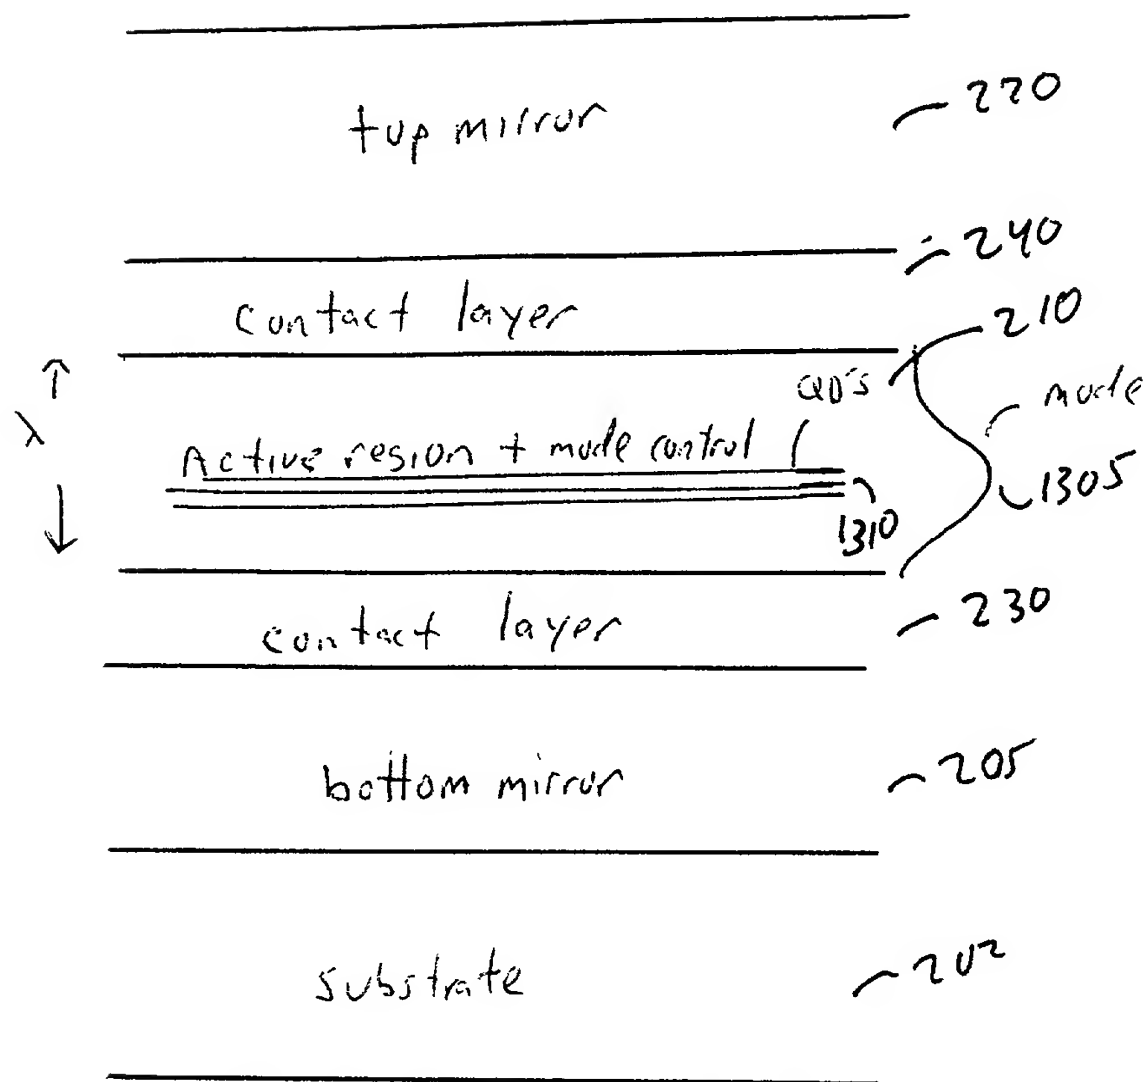 top mirror
220
240
contact layer
210
QD's
mode
λ
Active region + mode control
1305
1310
contact layer
230
bottom mirror
205
substrate
202